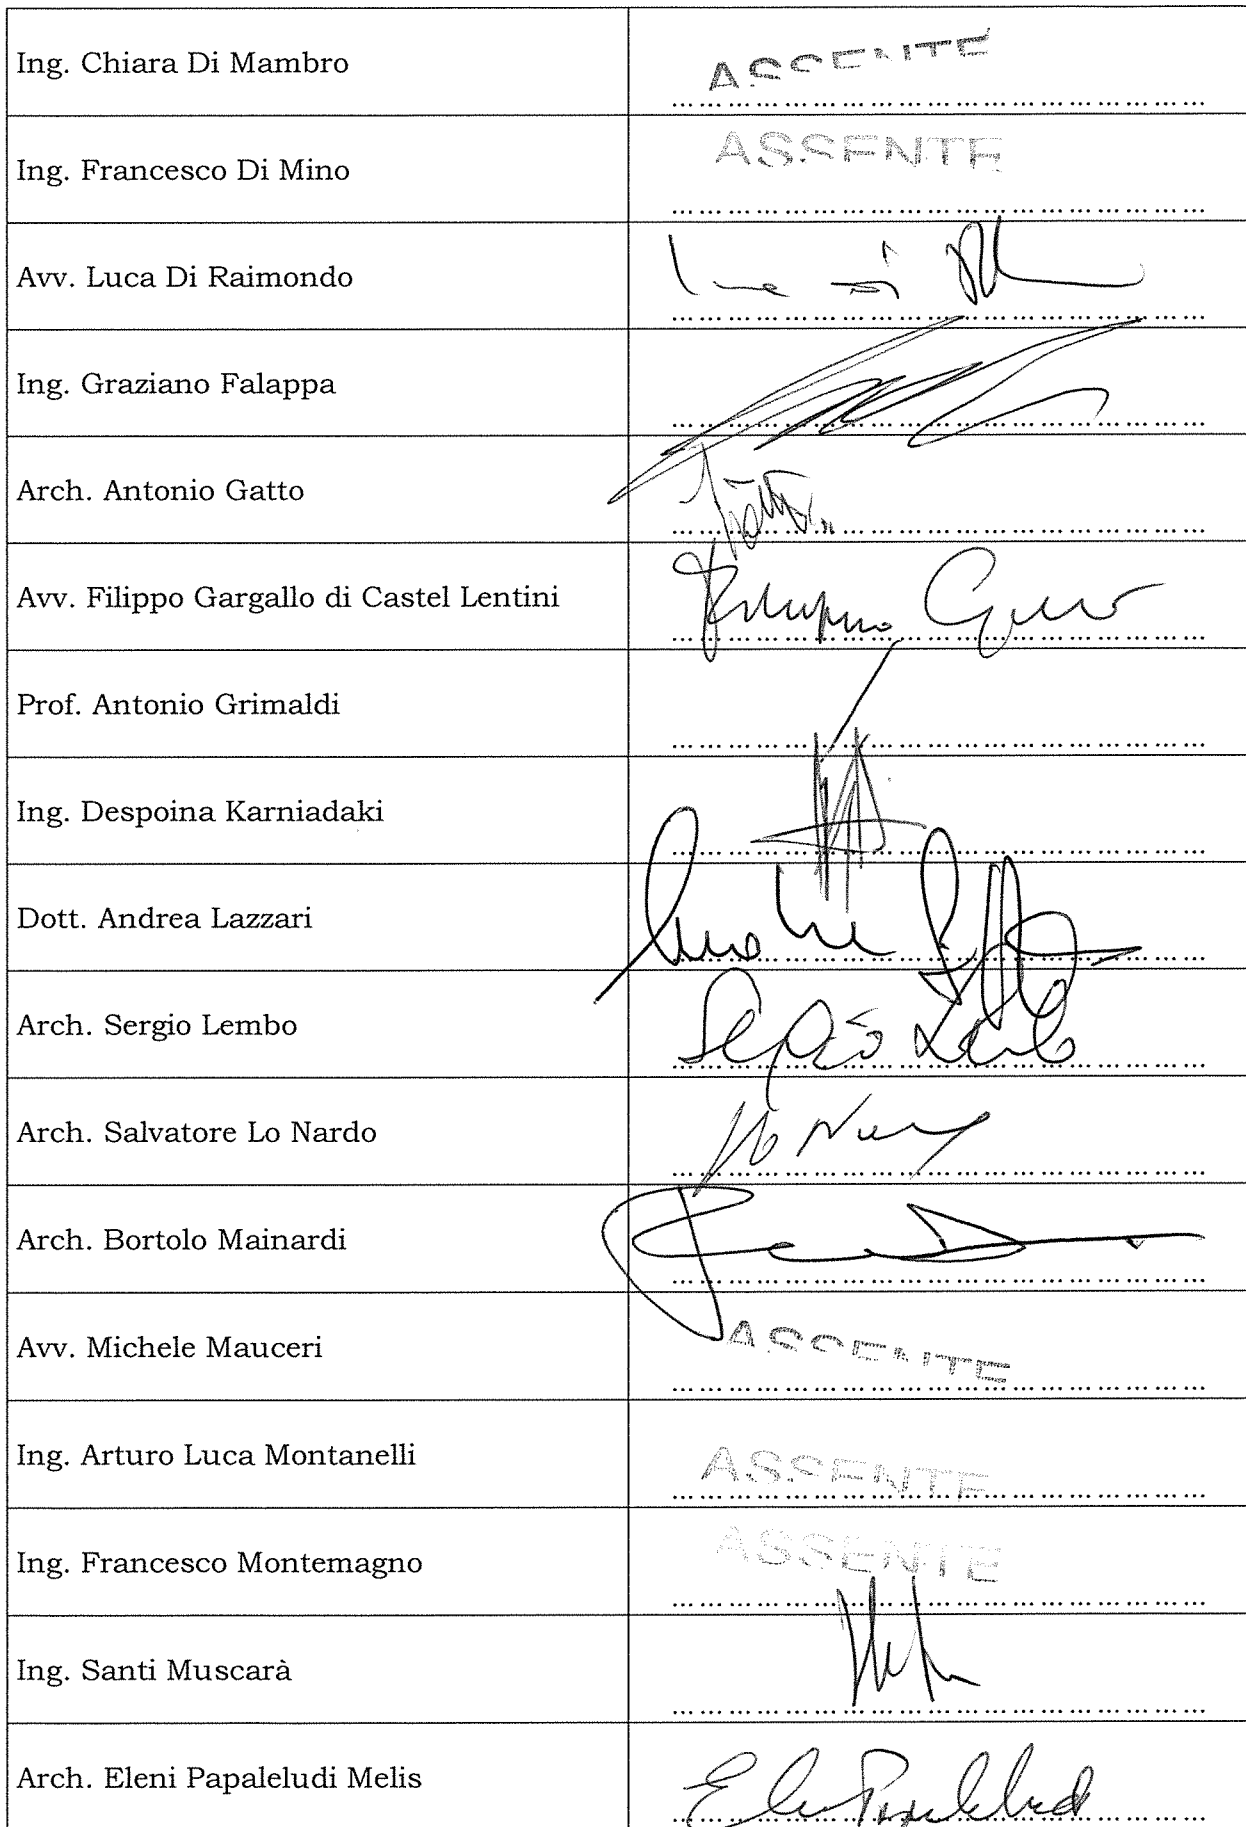 Ing. Chiara Di Mambro ASSENTE
Ing. Francesco Di Mino ASSENTE
Avv. Luca Di Raimondo
Ing. Graziano Falappa
Arch. Antonio Gatto
Avv. Filippo Gargallo di Castel Lentini
Prof. Antonio Grimaldi
Ing. Despoina Karniadaki
Dott. Andrea Lazzari
Arch. Sergio Lembo Sergio Lembo
Arch. Salvatore Lo Nardo
Arch. Bortolo Mainardi
Avv. Michele Mauceri ASSENTE
Ing. Arturo Luca Montanelli ASSENTE
Ing. Francesco Montemagno ASSENTE
Ing. Santi Muscarà
Arch. Eleni Papaleludi Melis